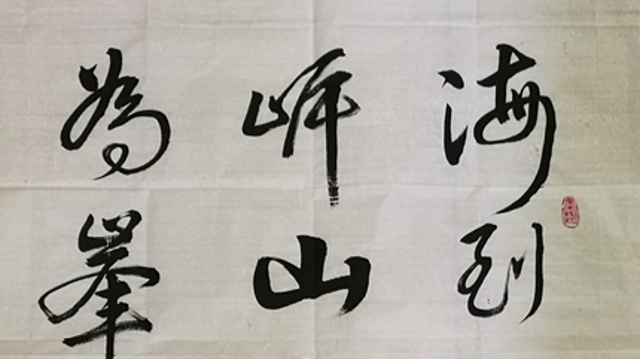 海到
岸山
為峯